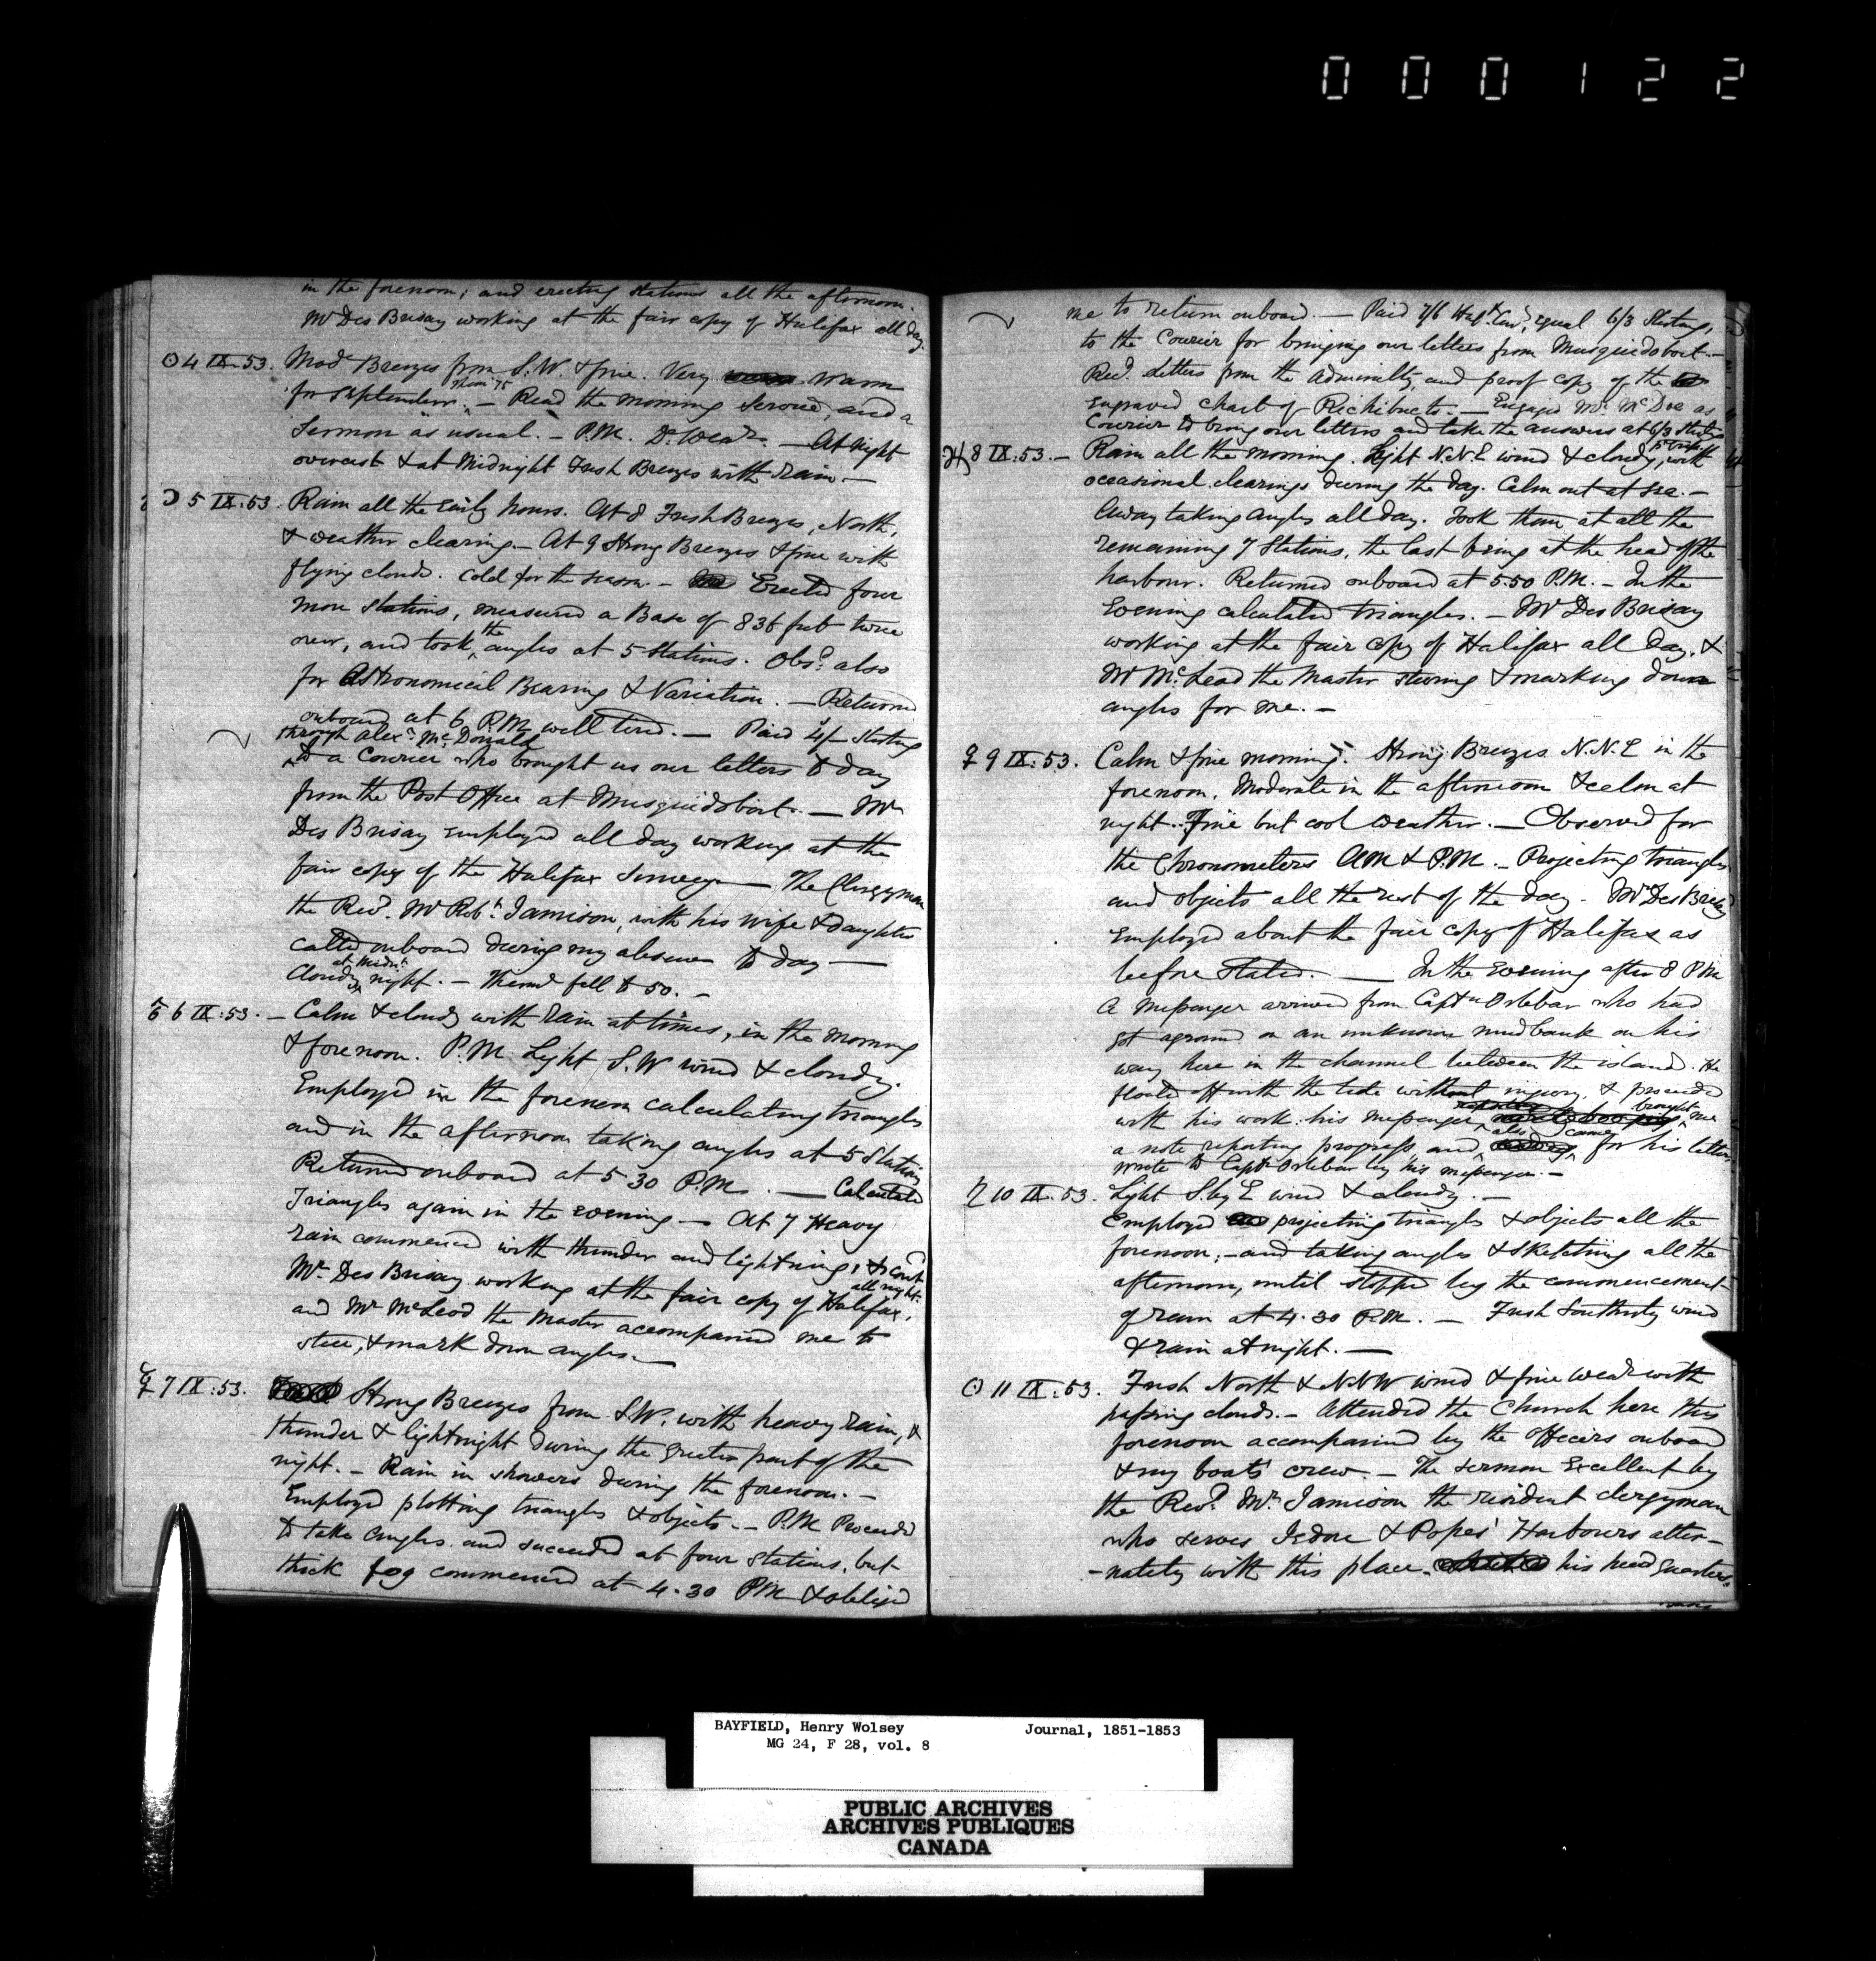 000122
in the forenoon; and erecting stations all the afternoon.
Mr Des Brisay working at the fair copy of Halifax all day.
☉ 4 IX. 53. Modr Breezes from S.W. & fine. Very warm
Therm 75
for September. - Read the Morning Service, and a
Sermon as usual. - P.M. Do Wear. - At Night
overcast & at Midnight Fresh Breezes with rain. -
☽ 5 IX. 53. Rain all the Early hours. At 8 Fresh Breezes, North,
& weather clearing. - At 9 Strong Breezes & fine with
flying clouds. Cold for the season. - Erected four
more stations, measured a Base of 836 feet twice
over, and took the angles at 5 Stations. Obsd also
for Astronomical Bearing & Variation. - Returned
onboard at 6 P.M. well tired. - Paid 4/- Sterling
through Alexr McDonald
to a Courier who brought us our letters to day
from the Post Office at Musquidoboit. - Mr
Des Brisay Employed all day working at the
fair copy of the Halifax Survey - The Clergyman
the Revd. Mr Robt. Jamison, with his wife & daughter
called onboard during my absence to day -
at Midnt.
Cloudy night. - Thermr fell to 50. -
♂ 6 IX: 53. - Calm & cloudy with rain at times, in the morning
& forenoon. P.M. Light S.W wind & cloudy.
Employed in the forenoon calculating triangles
and in the afternoon taking angles at 5 Stations
Returned onboard at 5 30 P.M. - Calculated
Triangles again in the evening - At 7 Heavy
rain commenced with thunder and lightning, & contd
all night.
Mr. Des Brisay working at the fair copy of Halifax,
and Mr McLeod the Master accompanied me to
steer, & mark down angles. -
☿ 7 IX: 53. Strong Breezes from S.W. with heavy rain, &
thunder & lightnight during the greater part of the
night. - Rain in showers during the forenoon. -
Employed plotting triangles & objects. - P.M Proceeded
to take angles and succeeded at four stations, but
thick fog commenced at 4.30 PM & obliged
me to return onboard. - Paid 7/6 equal 6/3 Sterling,
to the Courier for bringing our letters from Musquidoboit. -
Recd. Letters from the Admiralty, and proof copy of the
engraved chart of Richibucto. - Engaged Mr. as
Courier to bring our letters and take the answers at 6/3 Sterling
♃ 8 IX: 53. - Rain all the morning. Light N.N.E wind & cloudy, with
occasional clearings during the day. Calm out at sea. -
Away taking angles all day. Took them at all the
remaining 7 Stations, the last being at the head of the
harbour. Returned onboard at 5.50 P.M. - In the
Evening calculated triangles. - Mr Des Brisay
working at the fair copy of Halifax all day, &
Mr McLeod the Master steering & marking down
angles for me. -
♀ 9 IX: 53. Calm & fine morning. Strong Breezes N.N.E in the
forenoon, Moderate in the afternoon & calm at
night. Fine but cool weather. - Observed for
the Chronometers AM & P.M. - Projecting triangles
and objects all the rest of the day - Mr Des Brisay
Employed about the fair copy of Halifax as
before stated. - In the Evening after 8 PM
a Messenger arrived from Captn Orlebar who had
got aground on an unknown mudbank on his
way here in the channel between the island. He
floated off with the tide without injury, & proceeded
with his work: his messenger brought me
a note reporting progress, and also came for his letters
write to Captn Orlebar by his messenger. -
♄ 10 IX. 53. Light S. by E wind & cloudy. -
Employed projecting triangles & objects all the
forenoon; - and taking angles & sketching all the
afternoon, until stopped by the commencement
of rain at 4.30 P.M. - Fresh Southerly wind
& rain at night. -
☉ 11 IX: 53. Fresh North & N.N.W wind & fine wear with
passing clouds. - Attended the Church here this
forenoon accompanied by the Officers onboard
& my boats' crew. - The sermon Excellent by
the Revd. Mr. Jamison the resident clergyman
who serves Jedore & Popes' Harbours alter-
-nately with this place. his head quarters.
BAYFIELD, Henry Wolsey Journal, 1851-1853
MG 24, F 28, vol. 8
PUBLIC ARCHIVES
ARCHIVES PUBLIQUES
CANADA